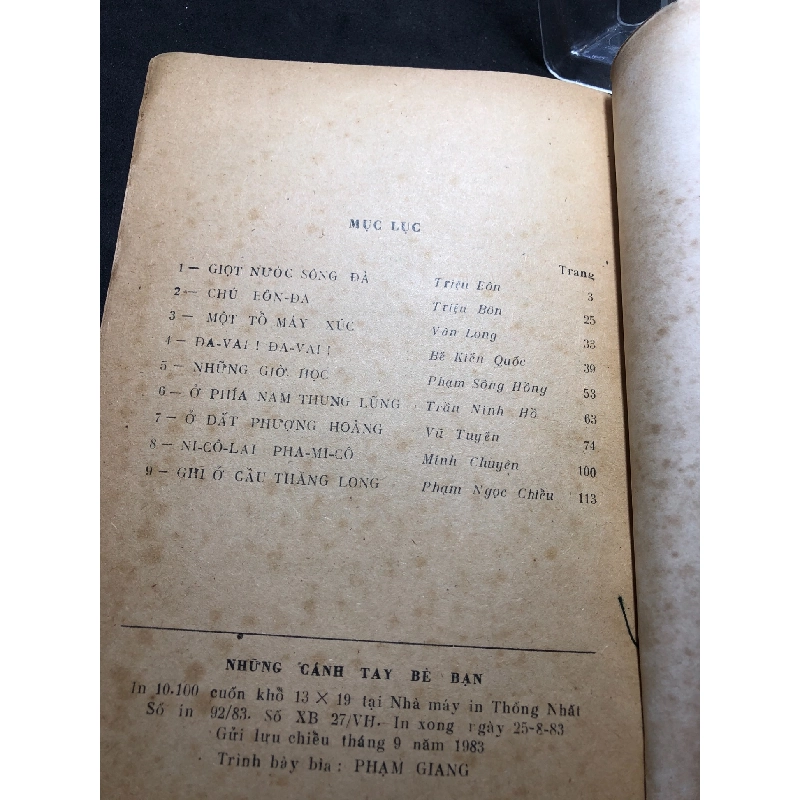 MỤC LỤC
Trang
1 — GIỌT NƯỚC SÔNG ĐÀ Triệu Bôn 3
2 — CHÚ BÔN-ĐA Triệu Bôn 25
3 — MỘT TỔ MÁY XÚC Vân Long 33
4 — ĐA-VAI ! ĐA-VAI ! Bế Kiến Quốc 39
5 — NHỮNG GIỜ HỌC Phạm Sông Hồng 53
6 — Ở PHÍA NAM THUNG LŨNG Trần Ninh Hồ 63
7 — Ở ĐẤT PHƯỢNG HOÀNG Vũ Tuyển 74
8 — NI-CÔ-LAI PHA-MI-CÔ Minh Chuyên 100
9 — GHI Ở CẦU THĂNG LONG Phạm Ngọc Chiểu 113
NHỮNG CÁNH TAY BÈ BẠN
In 10.100 cuốn khổ 13 × 19 tại Nhà máy in Thống Nhất
Số in 92/83. Số XB 27/VH. In xong ngày 25-8-83
Gửi lưu chiểu tháng 9 năm 1983
Trình bày bìa : PHẠM GIANG